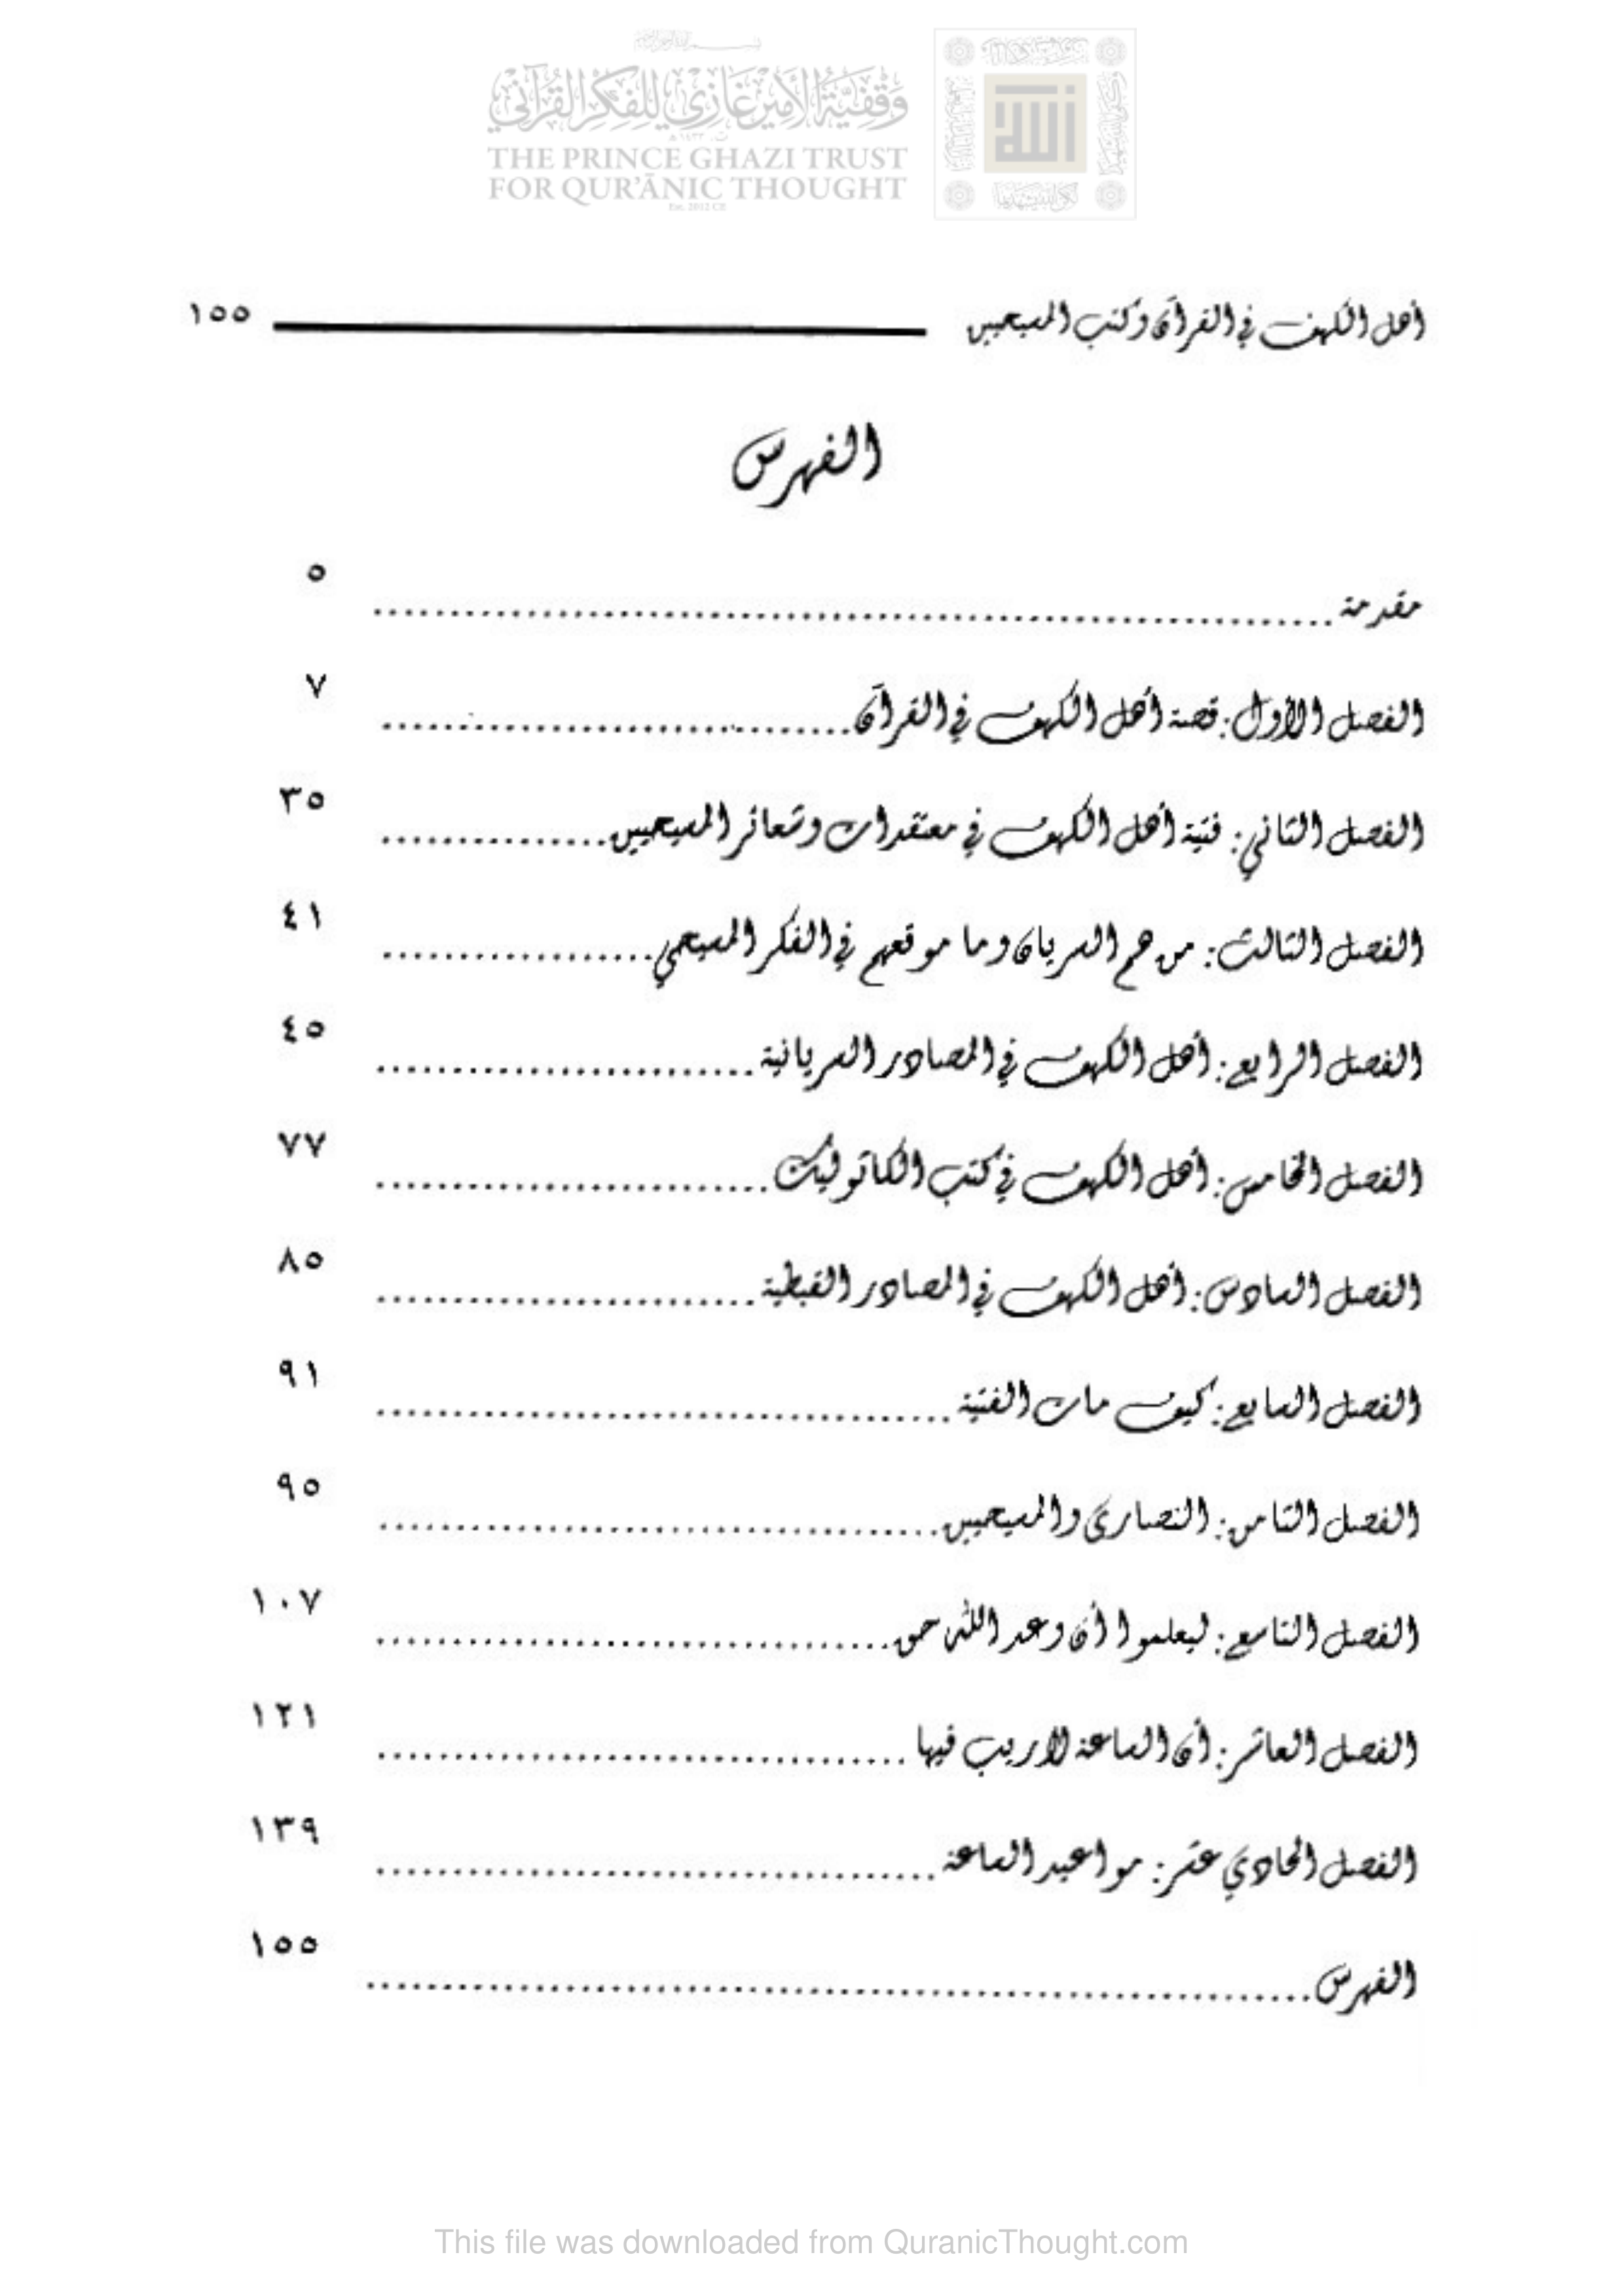 وقفية الأمير غازي للفكر القرآني
THE PRINCE GHAZI TRUST
FOR QUR'ĀNIC THOUGHT
Est. 2012 CE
أهل الكهف في القرآن وكتب المسيحيين ١٥٥
الفهرس
مقدمة ٥
الفصل الأول: قصة أهل الكهف في القرآن ٧
الفصل الثاني: فتية أهل الكهف في معتقدات وشعائر المسيحيين ٣٥
الفصل الثالث: من هم السريان وما موقعهم في الفكر المسيحي ٤١
الفصل الرابع: أهل الكهف في المصادر السريانية ٤٥
الفصل الخامس: أهل الكهف في كتب الكاثوليك ٧٧
الفصل السادس: أهل الكهف في المصادر القبطية ٨٥
الفصل السابع: كيف مات الفتية ٩١
الفصل الثامن: النصارى والمسيحيين ٩٥
الفصل التاسع: ليعلموا أن وعد الله حق ١٠٧
الفصل العاشر: أن الساعة لا ريب فيها ١٢١
الفصل الحادي عشر: مواعيد الساعة ١٣٩
الفهرس ١٥٥
This file was downloaded from QuranicThought.com